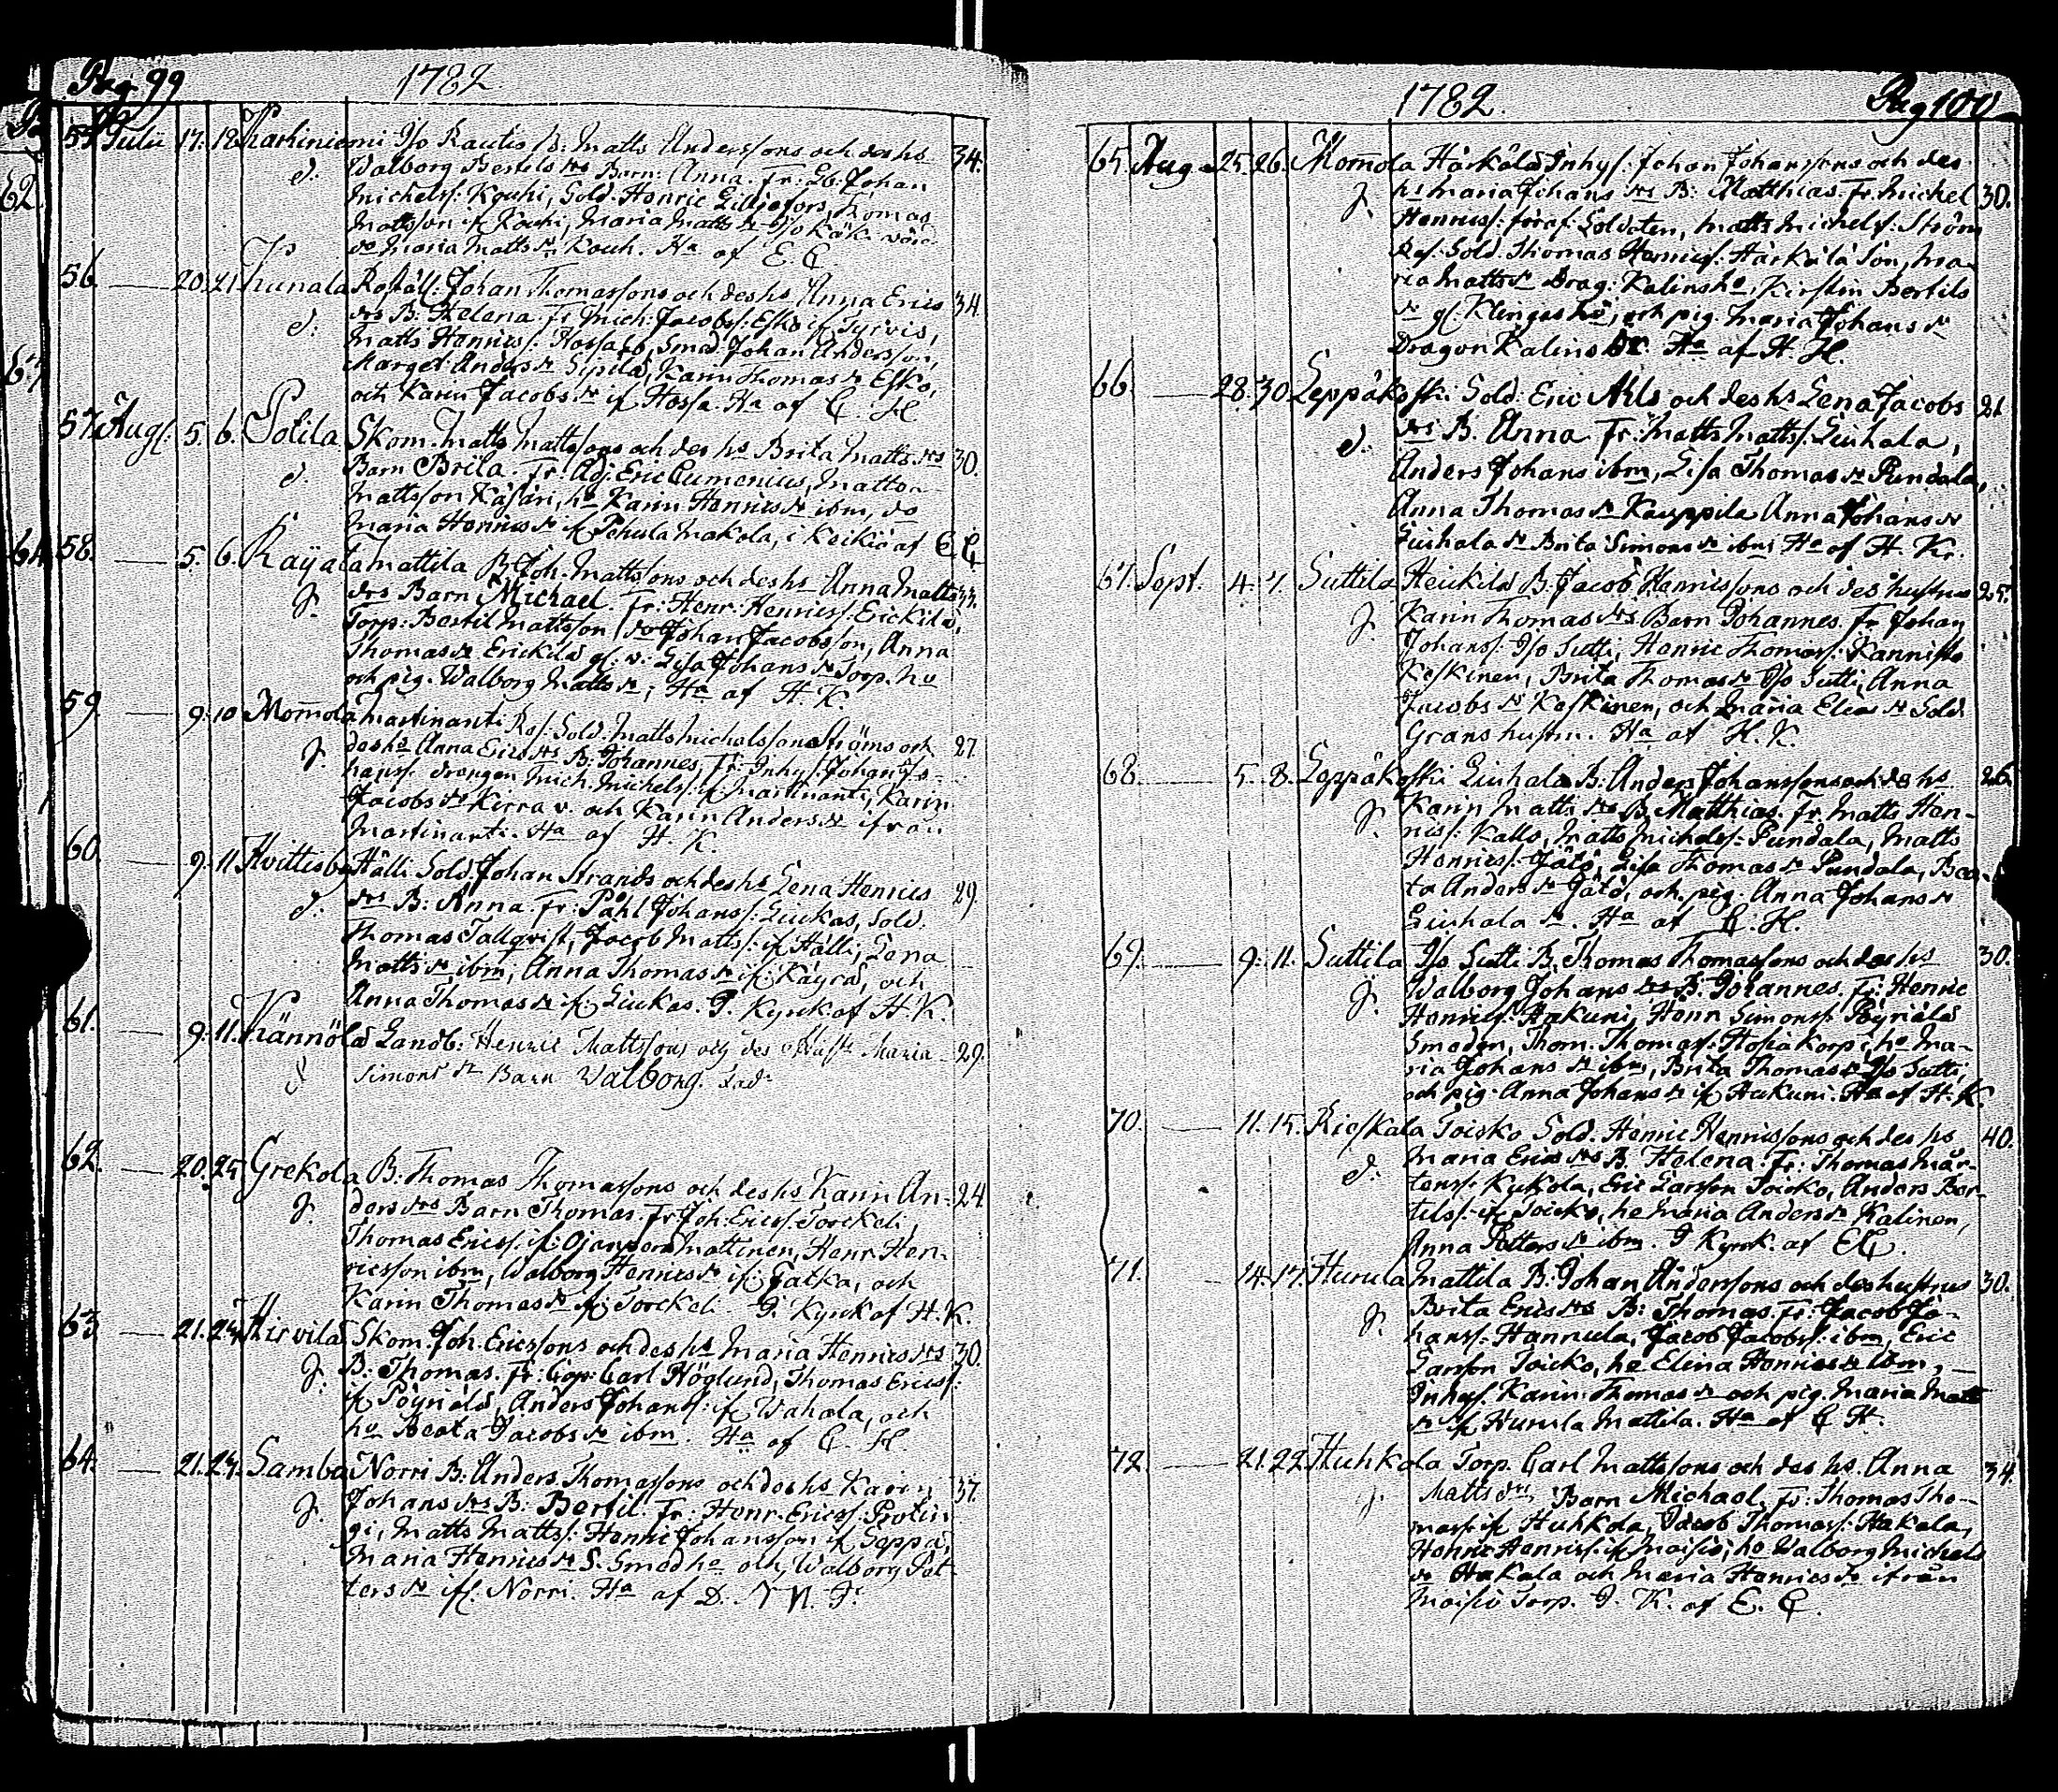 Pag. 99
1782.
55. Julii 17. 18. Karhiniemi Iso Rautis B: Matts Anderssons och des hs 34.
d: Walborg Bertels drs Barn: Anna. Fr: Lb. Johan
Michels: Kouhi, Sold. Henric Lilliefors, Thomas
Mattsson if Kouhi, Maria Matts dr Iso
do Maria Matts dr Kouh. Ha af E. C.
56. 20. 21. Kunala Roställ: Johan Thomassons och des hs Anna Erics 34.
d: drs B: Helena. Fr Mich: Jacobs: Esko if
Matts Henrics: Hossa, Smed. Johan Andersson,
Marget Anders dr Sipilä, Karin Thomas dr Esko,
och Karin Jacobs dr if Hossa. Ha af C. H.
57. Aug. 5. 6. Sotila Skom. Matts Mattssons och des hs Brita Matts drs 30.
d: Barn Brita. Fr. Adj. Eric Cumenius, Matts
Mattsson Käsäri, ho Karin Henrics dr ibm, do
Maria Henrics dr if Pehula Makola, i Keikiö af E. C.
58. 5. 6. Raijala Mattila B: Joh. Mattssons och des hs Anna Matts 33.
g. drs Barn Michael. Fr: Henr: Henrics: Erickilä,
Torp: Bertil Mattsson do Johan Jacobsson, Anna
Thomas dr Erickilä gl: v: Lisa Johans dr Torp. ho
och pig. Walborg Matts dr; Ha af H. K.
59. 9. 10 Mom̄ola Martinanti Res. Sold. Matts Michelssons Ströms och 27.
g. des hs Anna Erics drs B: Johannes. Fr: Inhys. Johan Jo-
hans: drengen Mich. Michels: if Martinanti, Karin
Jacobs dr Kirra v. och Karin Anders dr ifrån
Martinanti. Ha af H. K.
60. 9. 11. Hvittisby Hälli Sold. Johan Strands och des hs Lena Henrics 29.
d: drs B: Anna. Fr: Påhl Johans: Liukas, Sold.
Thomas Tallqvist, Jacob Matts: if Hälli, Lena
Matts dr ibm, Anna Thomas dr if: Käyrä, och
Anna Thomas dr if: Liukas. I Kyrk. af H. K.
61. 9. 11. Kännölä Landb: Henric Mattssons och des Hust. Maria 29.
d Simons dr Barn Walborg.
62. 20. 25. Grekola B: Thomas Thomassons och des hs Karin An- 24
g. ders drs Barn Thomas. Fr Joh: Erics: Torckeli,
Thomas Erics: if: Ojanperä Mattinen, Henr. Hen-
ricsson ibm, Walborg Henrics dr if: Jatka, och
Karin Thomas dr if Torckeli. I Kyrk af H. K.
63. 21. 24. Hirvilä Skom. Joh. Ericssons och des hs Maria Henrics drs 30.
g. B: Thomas. Fr: Cop: Carl Höglund, Thomas Erics:
if Pöyriälä, Anders Johans: if Wahala, och
ho Beata Jacobs dr ibm. Ha af C. H.
64. 21. 24. Samba Norri B: Anders Thomassons och des hs Karin 37.
g. Johans drs B: Bertil. Fr: Henr. Erics: Protin
gi, Matts Matts: Henric Johansson if Seppä,
Maria Henrics dr S. Smed ho och Walborg Pet-
ters dr if. Norri. Ha af D.
1782.
Pag 100
65. Aug. 25. 26. Mom̄ola Härkälä Inhys. Johan Johanssons och des
g. hs Maria Johans drs B: Matthias. Fr. Michel 30.
Henrics: föraf: Soldaten, Matts Michels: Ström
Res. Sold. Thomas Henrics: Härkälä Son, Ma-
ria Matts dr Drag: Kalins ho, Kirstin Bertils
dr gl: Klingas ho, och pig. Maria Johans dr
Dragon Kalins Ha af H. H.
66. 28. 30 Leppäkoski Sold. Eric Ahls och des hs Lena Jacobs 21
d: drs B. Anna. Fr: Matts Matts: Liuhala,
Anders Johans ibm, Lisa Thomas dr Pundala,
Anna Thomas dr Kauppila Anna Johans dr
Liuhala dr Brita Simons dr ibm Ha af H. K.
67. Sept. 4. 7. Suttila Heickilä B: Jacob Henricssons och des hustrus 25.
g. Karin Thomas drs Barn Johannes. Fr Johan
Johans: Iso Sutti, Henric Thomas: Kannisto
Keskinen, Brita Thomas dr Iso Sutti, Anna
Jacobs dr Keskinen, och Maria Elias dr Sold.
Grans hustru. Ha af H. K.
68. 5. 8. Leppäkoski Liuhala B: Anders Johanssons och des hs 26
g. Karin Matts drs B. Matthias. Fr. Matts Hen-
rics: Kallo, Matts Michels: Pundala, Matts
Henrics: Jätö, Lisa Thomas dr Pundala, Bea-
ta Anders dr Jätö, och pig. Anna Johans dr
Liuhala dr. Ha af C. H.
69. 9. 11. Suttila Iso Sutti B. Thomas Thomassons och des hs 30.
g. Walborg Johans drs B: Johannes. Fr: Henric
Henrics: Hakuni, Henr. Simons: Pöyriälä
Smeden, Thom. Thomas: Hosiakorpi, ho Ma-
ria Johans dr ibm, Brita Thomas dr Iso Sutti,
och pig. Anna Johans dr if Hakuni. Ha af H. K.
70. 11. 15. Rieskala Toicko Sold. Henric Henricssons och des hs 40.
d: Maria Erics drs B. Helena. Fr: Thomas Mår-
tens: Kukola, Eric Larsson Toicko, Anders Ber-
tils: if Toicko, ho Maria Anders dr Kalinen,
Anna Petters dr ibm. I Kyrk. af E C.
71. 14. 17. Hurula Mattila B: Johan Anderssons och des hustrus 30.
g. Brita Erics drs B: Thomas. Fr: Jacob Jo-
hans: Hannula, Jacob Jacobs: ibm, Eric
Larsson Toicko, ho Elina Henrics dr ibm,
Inhys. Karin Thomas dr och pig. Maria Matts
dr if Hurula Mattila. Ha af C H.
72. 21. 22. Huhkola Torp. Carl Mattssons och des hs. Anna 34.
g. Matts drs Barn Michael. Fr: Thomas Tho-
mas: if Huhkola, Jacob Thomas: Hakala,
Henric Henrics: if Maisio, ho Walborg Michels
dr Hakala och Maria Henrics dr ifrån
Maisio Torp. I. K. af E. C.